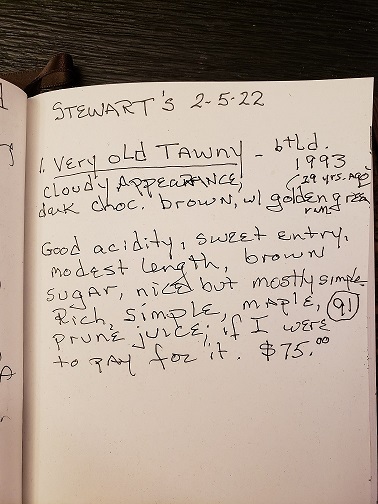 STEWART'S 2-5-22
1. Very old TAWNY - btld. 1993
cloudy APPEARANCE, (29 yrs. ago)
dark choc. brown, w/ golden green rim.
Good acidity, sweet entry,
modest length, brown
sugar, nice but mostly simple.
Rich, simple, maple, 91
prune juice; if I were
to pay for it. $75.00